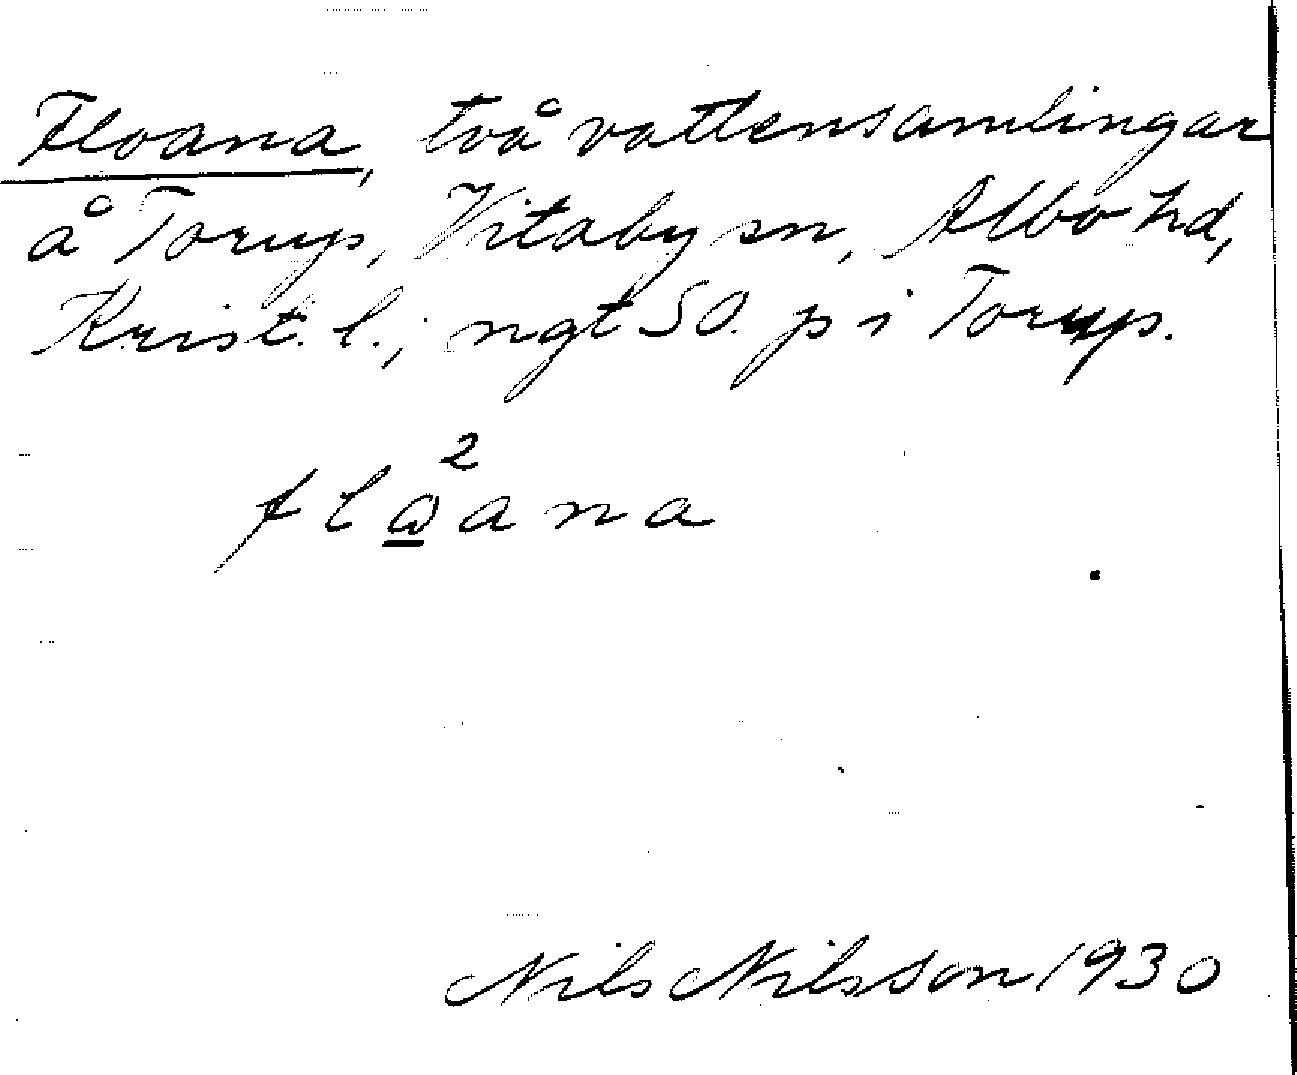 Floana, två vattensamlingar
å Torup, Vitaby sn, Albo hd,
Krist. l.; ngt SO. p i Torup.
flꞷ̲²ana
Nils Nilsson 1930